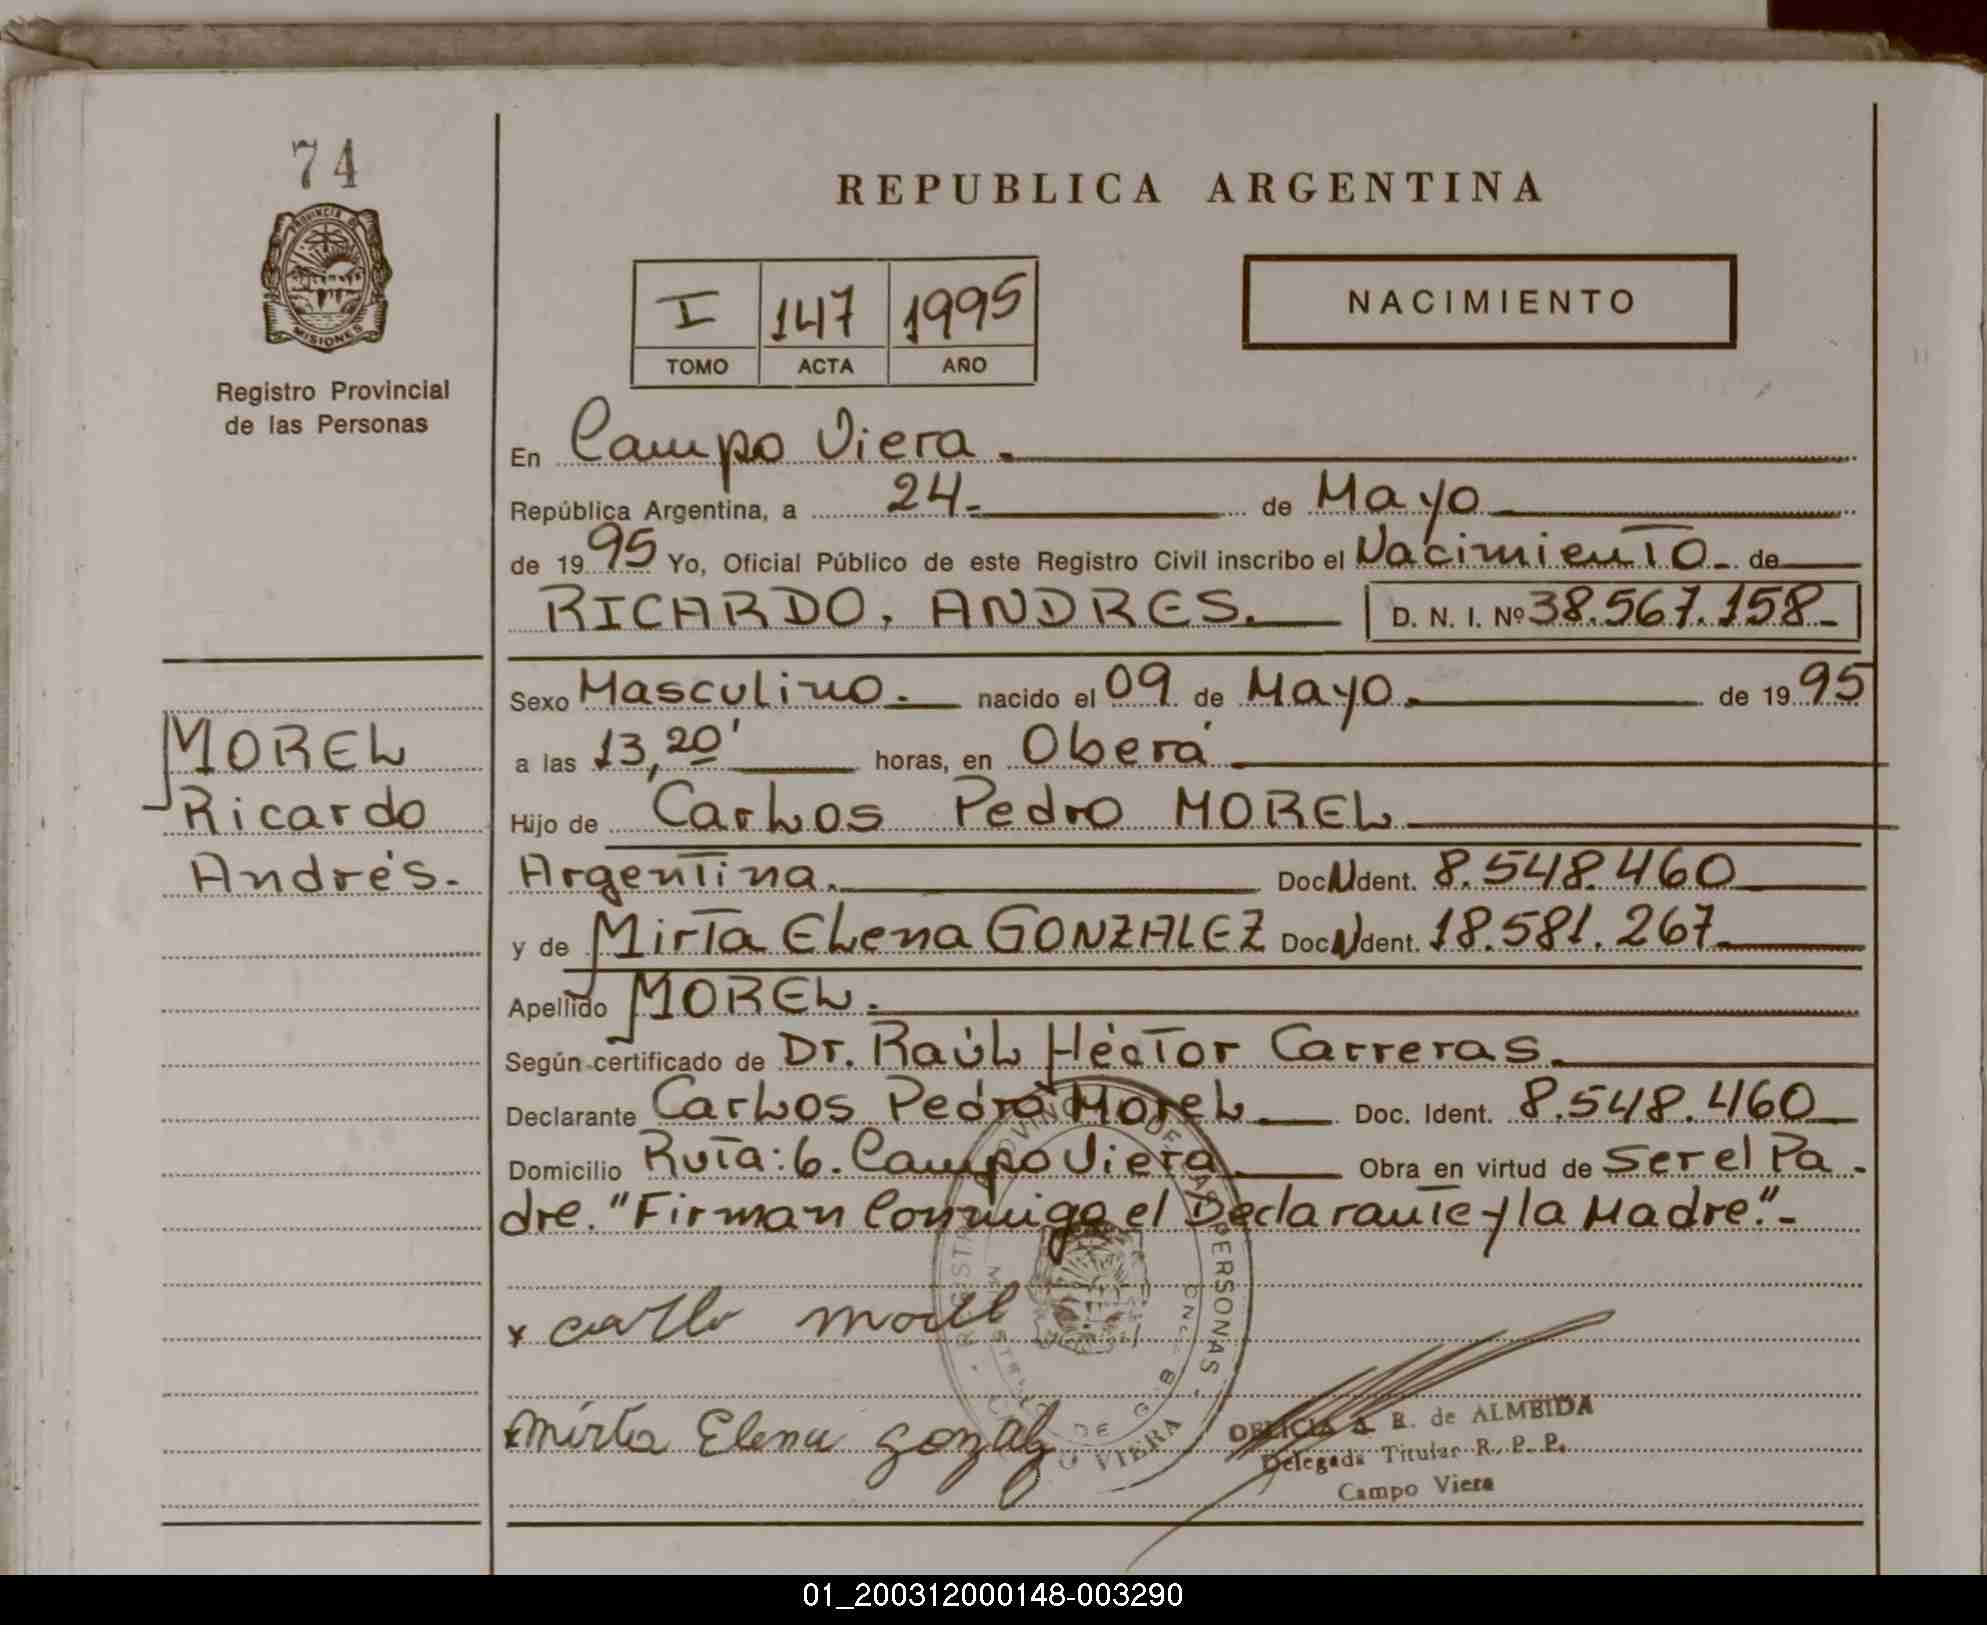 74
PROVINCIA D
MISIONES
Registro Provincial
de las Personas
REPUBLICA ARGENTINA
I 147 1995
TOMO ACTA AÑO
NACIMIENTO
En Campo Viera.
República Argentina, a 24- de Mayo
de 1995 Yo, Oficial Público de este Registro Civil inscribo el Nacimiento de
RICARDO, ANDRES. D. N. I. Nº 38.567.158-
Sexo Masculino. nacido el 09 de Mayo. de 1995
a las 13,20' horas, en Oberá
Hijo de Carlos Pedro MOREL
Argentina. Doc N Ident. 8.548.460
y de Mirta Elena GONZALEZ Doc N Ident. 18.581.267
Apellido MOREL.
Según certificado de Dr. Raúl Héctor Carreras.
Declarante Carlos Pedro Morel Doc. Ident. 8.548.460
Domicilio Ruta: 6. Campo Viera Obra en virtud de Ser el Pa-
dre. "Firman Conmigo el Declarante y la Madre."-
MOREL
Ricardo
Andrés.-
PERSONAS
VIERA
x morel
x Mirta Elena
DELICIA A. R. de ALMEIDA
Delegada Titular R. P. P.
Campo Viera
01_200312000148-003290